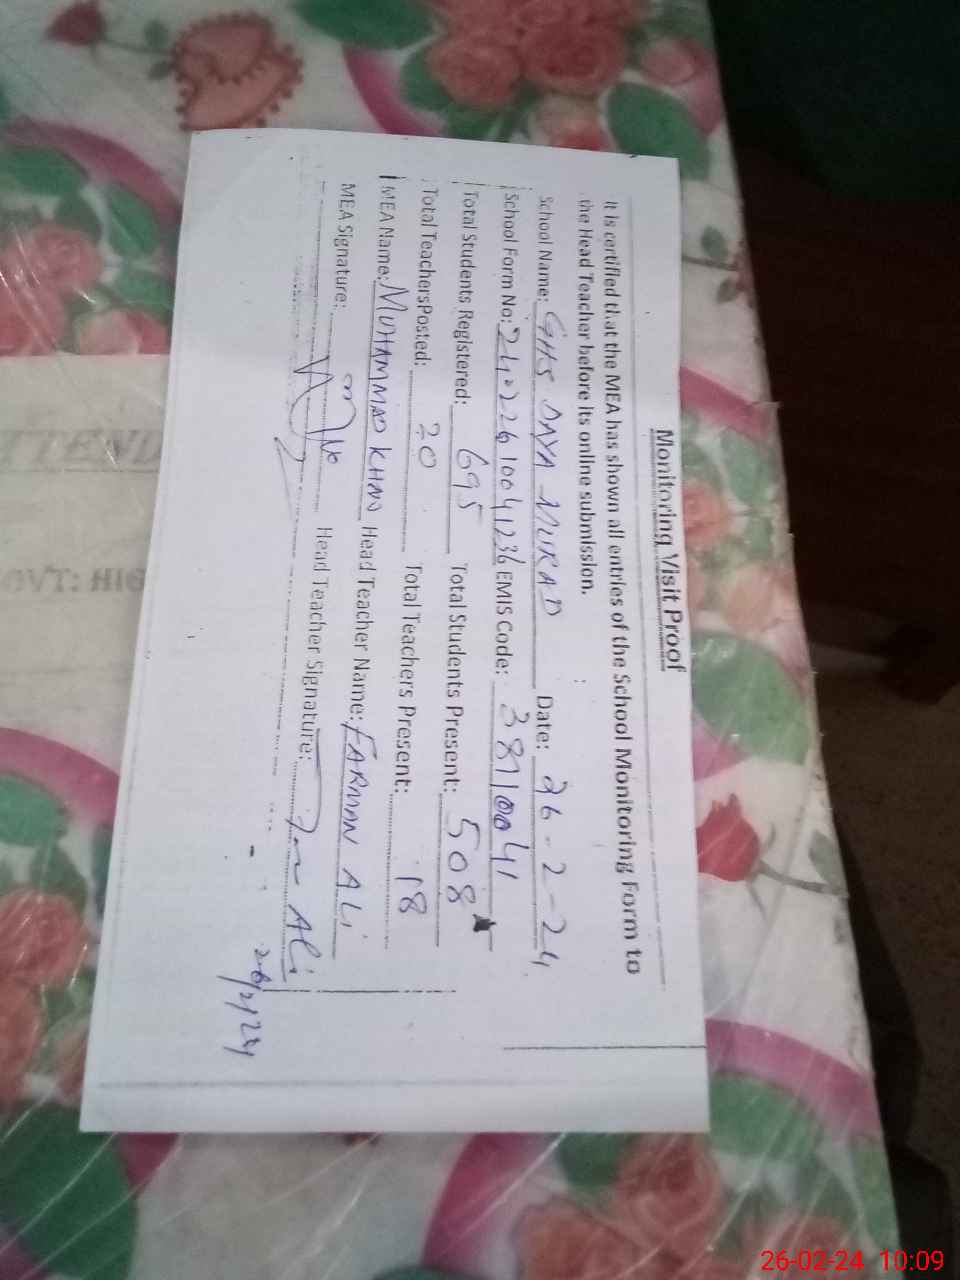 Monitoring Visit Proof
It is certified that the MEA has shown all entries of the School Monitoring Form to
the Head Teacher before its online submission.
School Name: GHS DAYA MURAD Date: 26-2-24
School Form No: 24022610041236 EMIS Code: 38110041
Total Students Registered: 695 Total Students Present: 508
Total Teachers Posted: 20 Total Teachers Present: 18
MEA Name: MUHAMMAD KHAN Head Teacher Name: FARMAN ALI
MEA Signature: Head Teacher Signature: Ali
26/2/24
TTEND
GVT: HIG
26-02-24 10:09